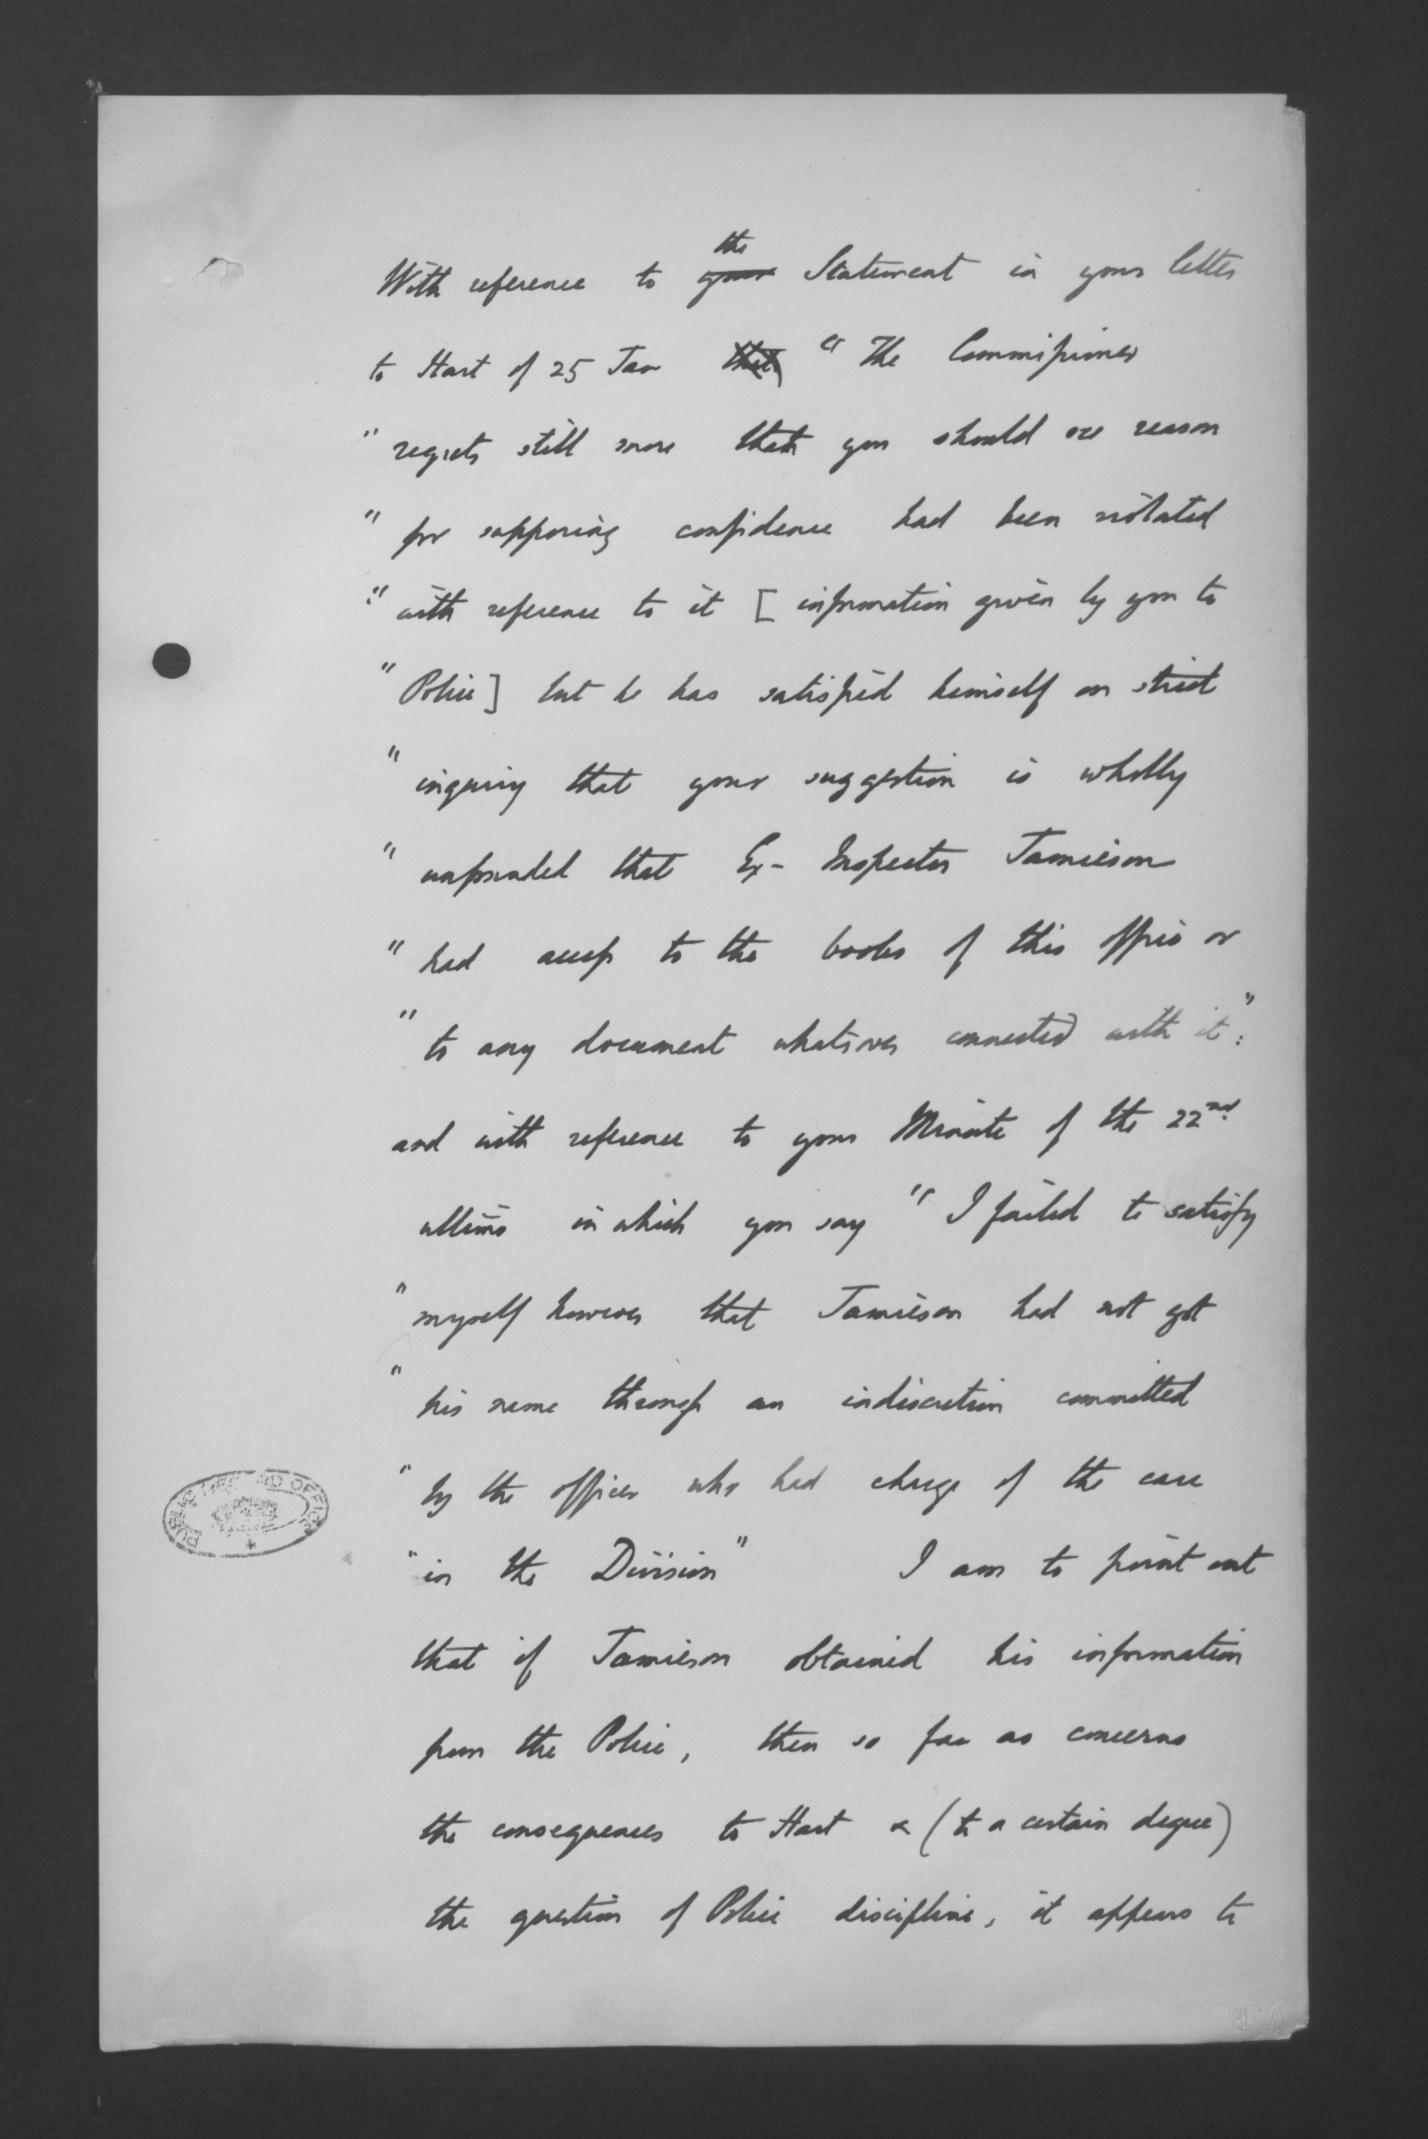 With reference to ~~your~~ the Statement in your letter
to Hart of 25 Jan ~~that~~ "The Commissioner
" regrets still more that you should see reason
" for supposing confidence had been violated
" with reference to it [ information given by you to
" Police] but he has satisfied himself on strict
" inquiry that your suggestion is wholly
" unfounded that Ex-Inspector Jamieson
" had access to the books of this office or
" to any document whatsoever connected with it":
and with reference to your Minute of the 22nd
ultimo in which you say " I failed to satisfy
" myself however that Jamieson had not got
" his name through an indiscretion committed
" by the officer who had charge of the case
" in the Division" I am to point out
that if Jamieson obtained his information
from the Police, then so far as concerns
the consequences to Hart & (to a certain degree)
the question of Police discipline, it appears to
PUBLIC RECORD OFFICE